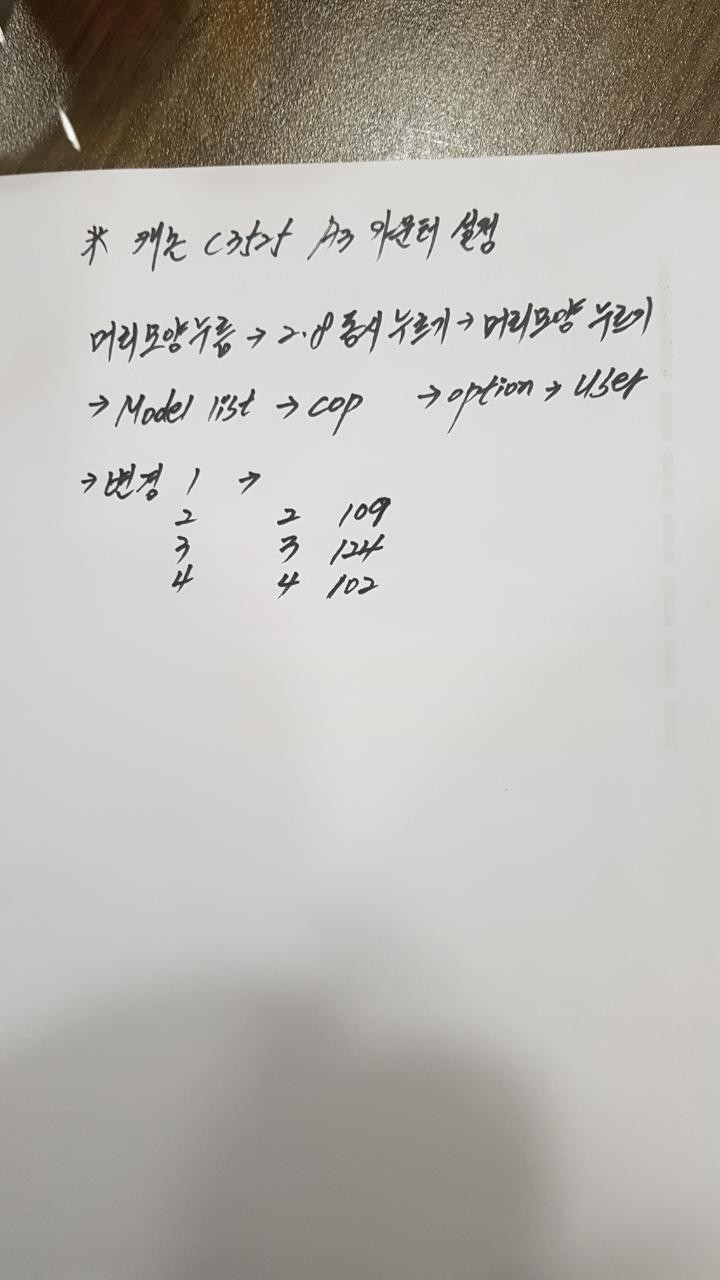 ※ 캐논 C3525 A3 카운터 설정
머리모양누름 → 2.8 동시 누르기 → 머리모양 누르기
→ Model list → COP → option → user
→ 변경 1 →
2 2 109
3 3 124
4 4 102